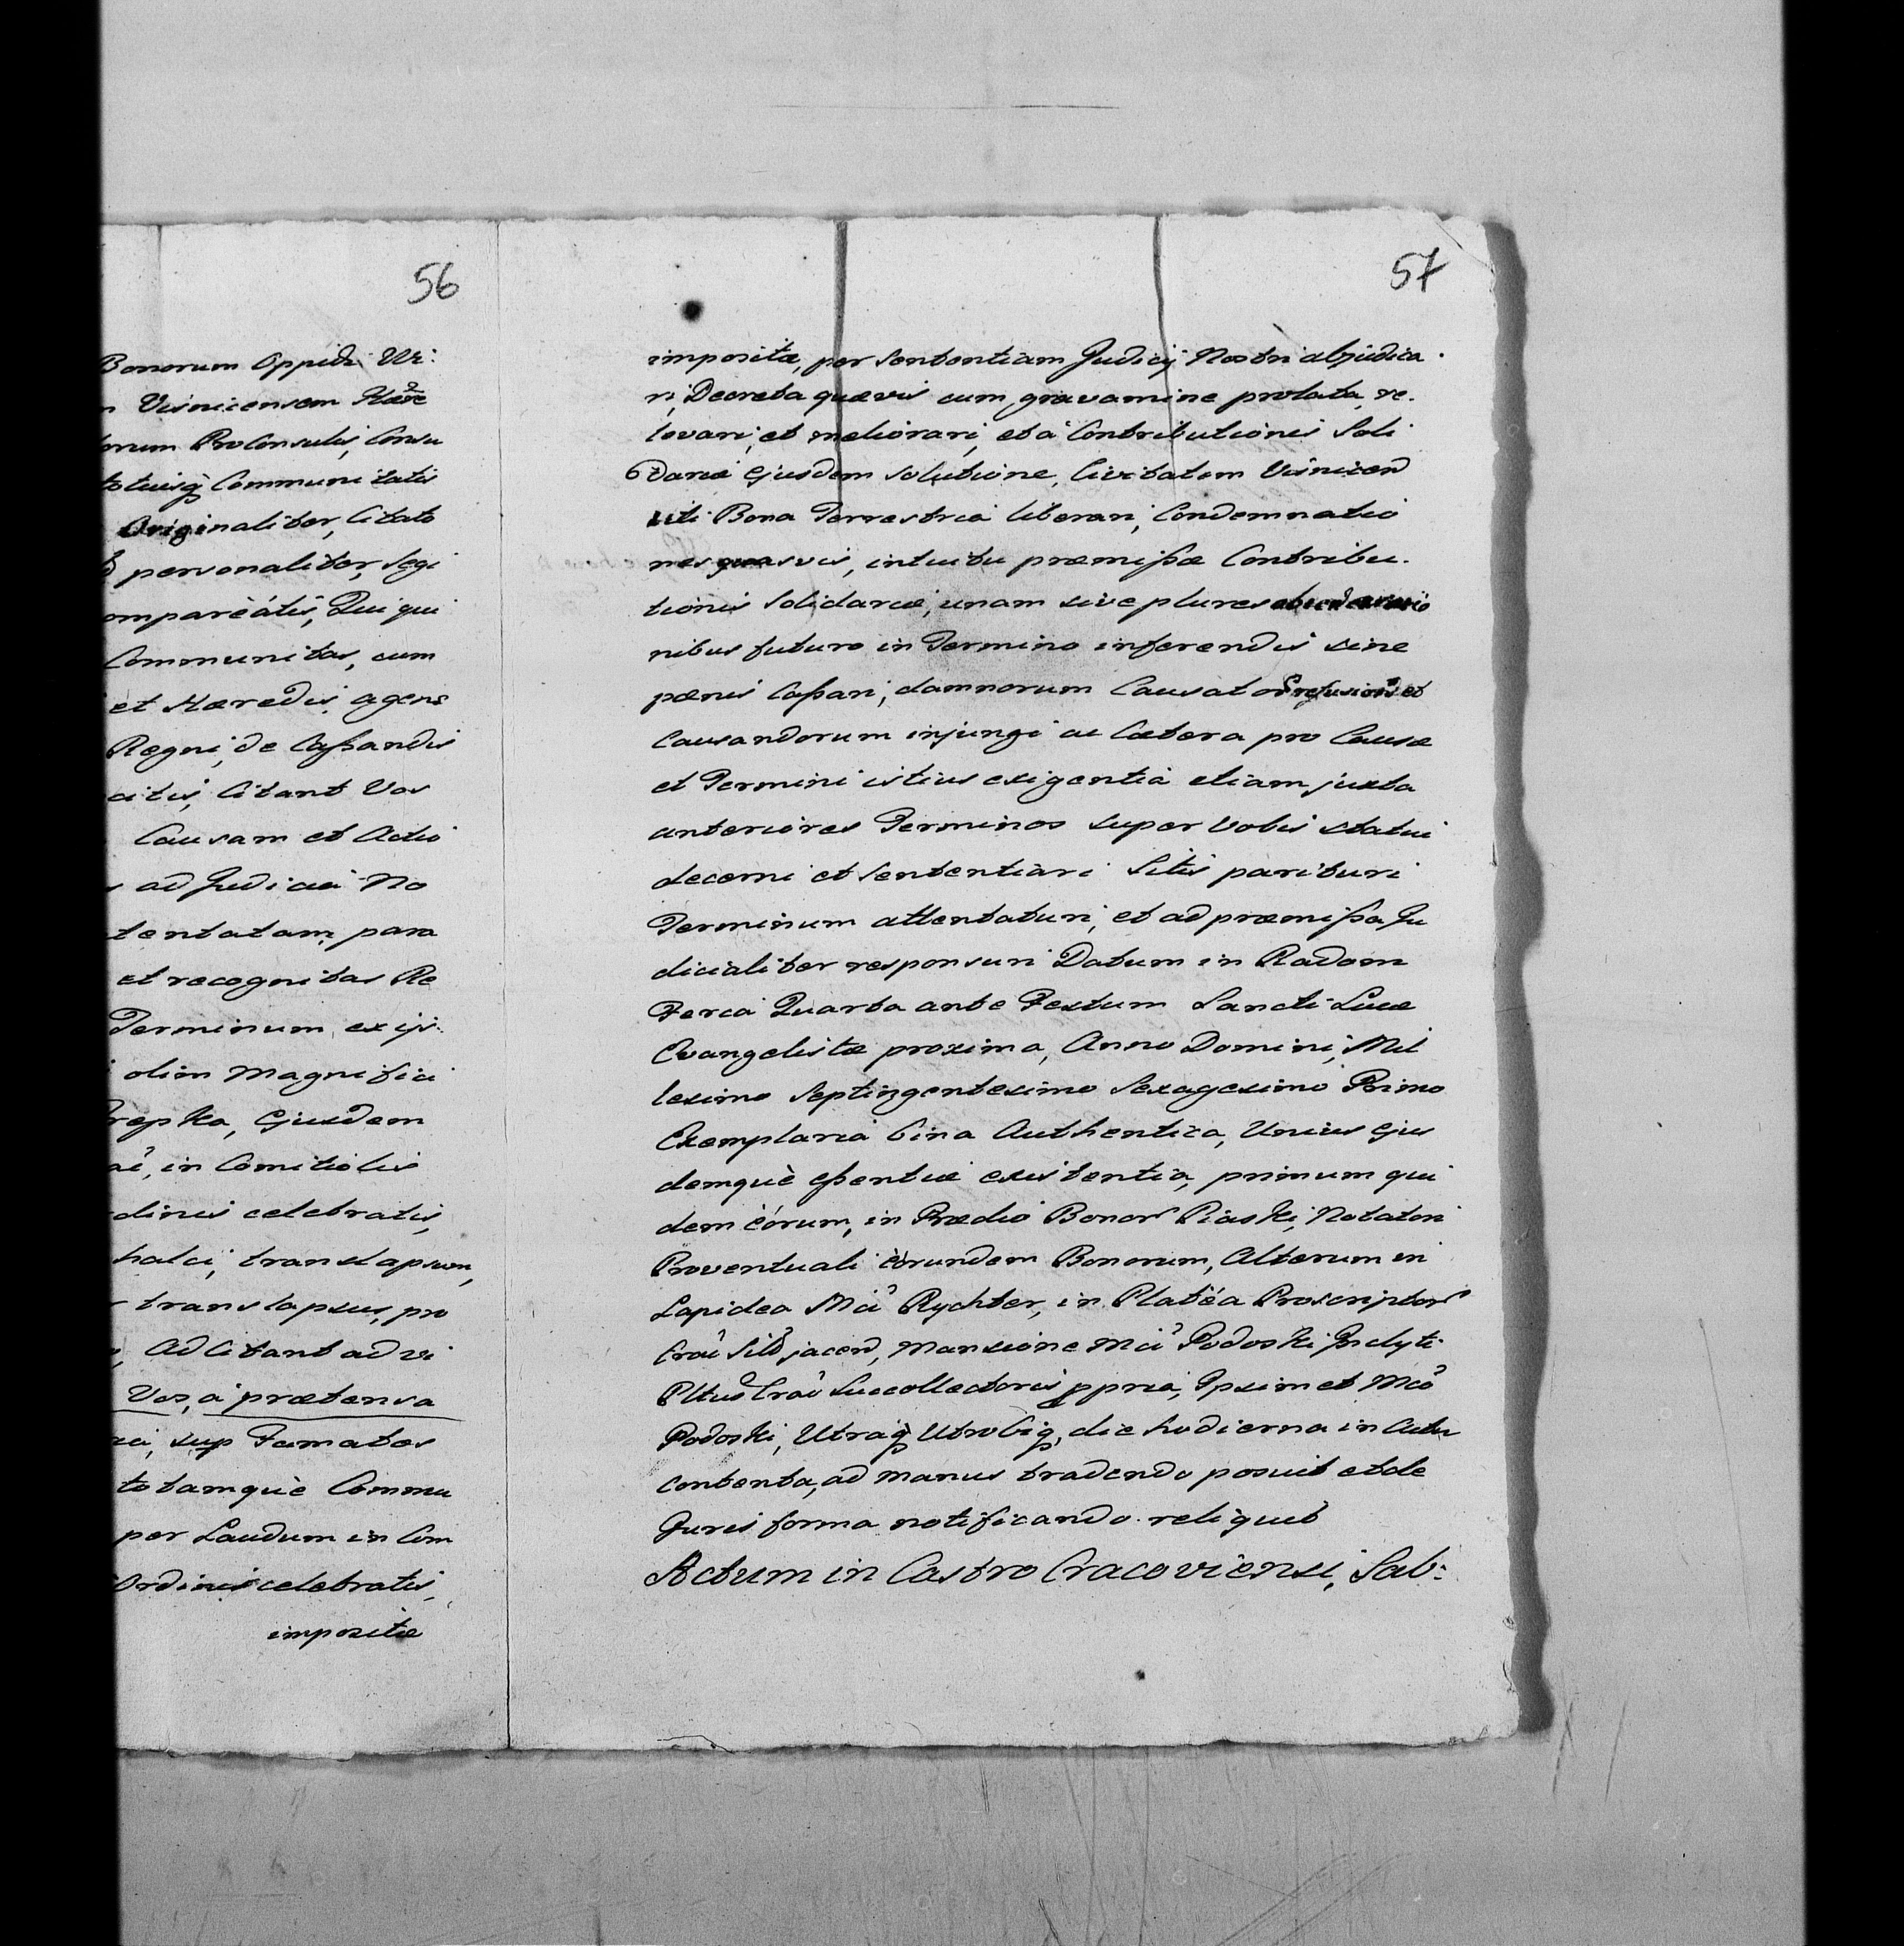 56
Bonorum Oppidi Wi:
Visnicensem Hære
orum ProConsulis, Consu
totiusq Communitatis
Originaliter, Citato
personaliter, Legi
ompareatis, Qui qui
Communitas, cum
et Hæredis, agens
Regni, de Cassandis
citis, Citant Vos
Causam et Actio
ad Judicia No
tentatam, para
et recognitas Re
Terminum, ex ijs
olim Magnifici
repka, Ejusdem
in Comitiolis
dinis celebratis,
halci, translapsum,
translapsus, pro
Adcitant ad vi
Vos, a prætensa
sup Famatos
totamquè Commu
per Laudum in Com
Ordinis celebratis,
impositæ
57
impositæ, per Sententiam Judicij Nostri abjudica
ri, Decreta quævis cum gravamine prolata, re
levari, et meliorari, et à Contributionis Soli
dariæ Ejusdem Solutione, Civitatem Visnicen
uti Bona Terrestria liberari, Condemnatio
nes quasvis, intuitu præmissæ Contribu
tionis Solidariæ, unam sive plures
nibus futuro in Termino inferendis sine
pœnis Cassari, damnorum Causator refusionem et
Causandorum injungi ac Cætera pro Causæ
et Termini istius exigentia etiam juxta
anteriores Terminos super Vobis statui
decerni et Sententiari Sitis parituri
Terminum attentaturi, et ad præmissa Ju
dicialiter responsuri Datum in Radom
Feria Quarta ante Festum Sancti Lucæ
Evangelistæ proxima, Anno Domini, Mil
lesimo Septingentesimo Sexagesimo Primo
Exemplaria bina Authentica, Unius ejus
demquè essentiæ existentia, primum qui
dem eórum, in Prædio Bonor Piaski, Notatori
Proventuali eòrundem Bonorum, Alterum in
Lapidea Mci Rychter, in Platèa Proscriptor
Crac Sitt jacend, Mansione Mci Podoski Jnclyti
Pltus Crac Succollectoris ppria, Ipsimet Mco
Podoski, Utraq Utrobiq, die hodierna in Actu
contenta, ad manus tradendo posuit et de
Juris forma notificando reliquit
Actum in Castro Cracoviensi, Sab: